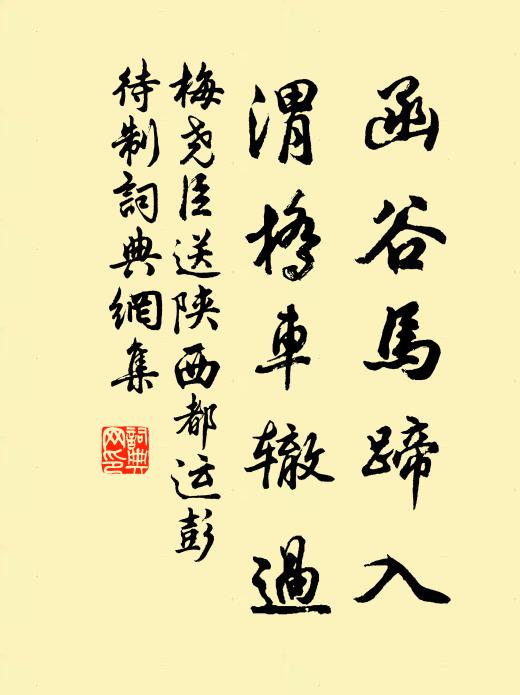 函谷馬蹄入
渭橋車辙過
梅尧臣送陝西都运彭
待制詞典網集
詞典
网印